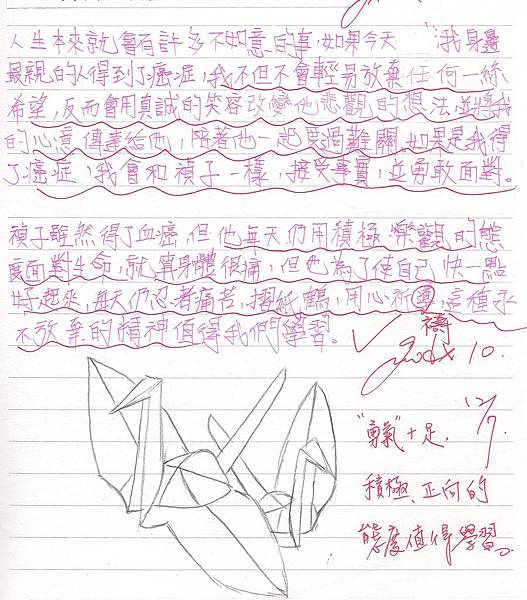 人生本來就會有許多不如意的事，如果今天 我身邊
最親的人得到了癌症，我不但不會輕易放棄任何一絲
希望，反而會用真誠的笑容改變他悲觀的想法，並將我
的心意傳達給他，陪著他一起度過難關。如果是我得
了癌症，我會和禎子一樣，接受事實，並勇敢面對。
禎子雖然得了血癌，但他每天仍用積極樂觀的態
度面對生命，就算身體很痛，但他為了使自己快一點
好起來，每天仍忍著痛苦，摺紙鶴，用心祈禱，這種永
不放棄的精神值得我們學習。
禱
Good x 10.
12/7
"勇氣"十足，
積極、正向的
態度值得學習。